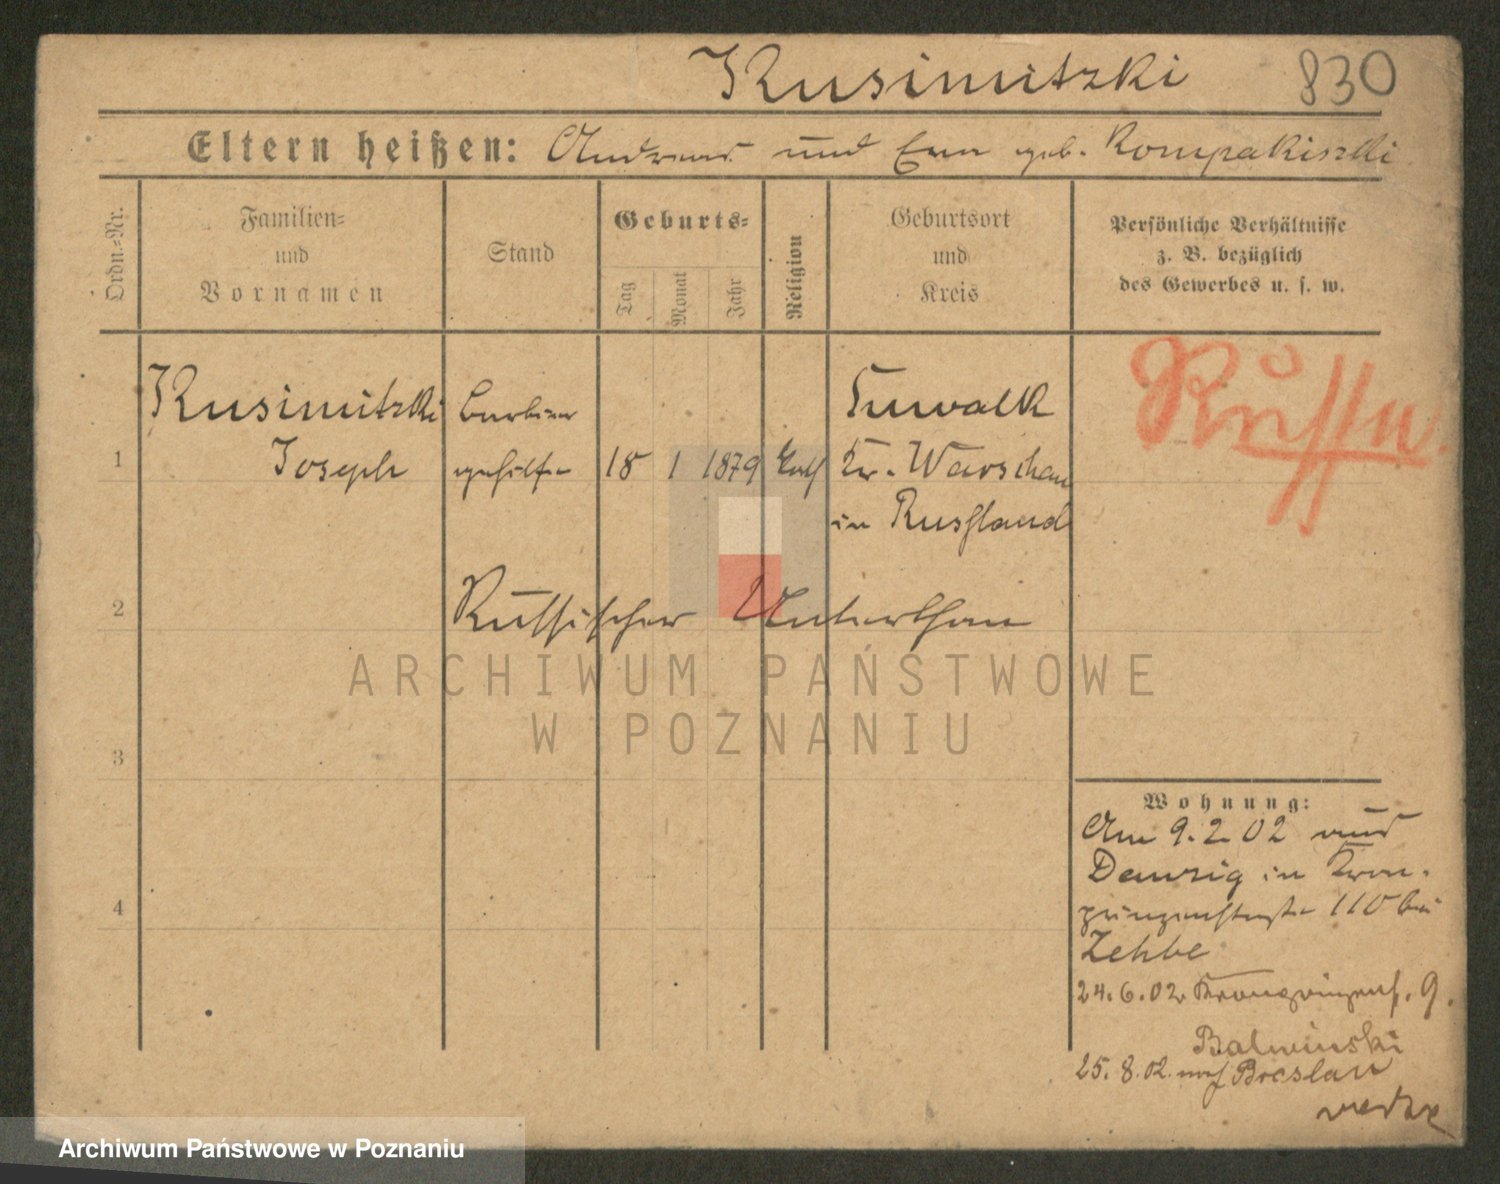 Kusimitzki 830
Eltern heißen: Andreas und Eva geb. Kompakiszki
Ordn.-Nr.
Familien-
und
Vornamen
Stand
Geburts-
Tag
Monat
Jahr
Religion
Geburtsort
und
Kreis
Persönliche Verhältnisse
z. B. bezüglich
des Gewerbes u. s. w.
Kusimitzki Barbier Suwalk Russe
1 Joseph gehilfe 18 1 1879 kath Kr. Warschau
in Russland
2 Russischer Unterthan
ARCHIWUM PAŃSTWOWE
W POZNANIU
3
4
Wohnung:
Am 9.2.02 aus
Danzig in Kron-
prinzenstraße 110 bei
Zehbe
24.6.02 Kronprinzenst. 9.
Balwinski
25.8.02. nach Breslau
Archiwum Państwowe w Poznaniu